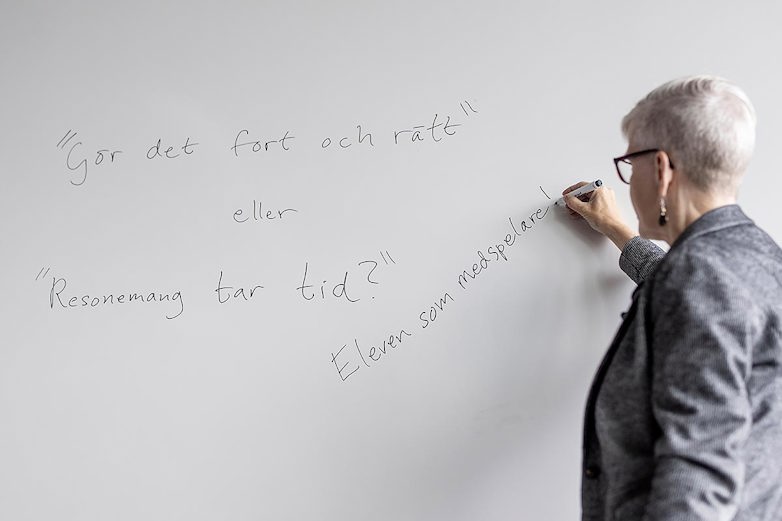 "Gör det fort och rätt"
eller
"Resonemang tar tid?"
Eleven som medspelare!